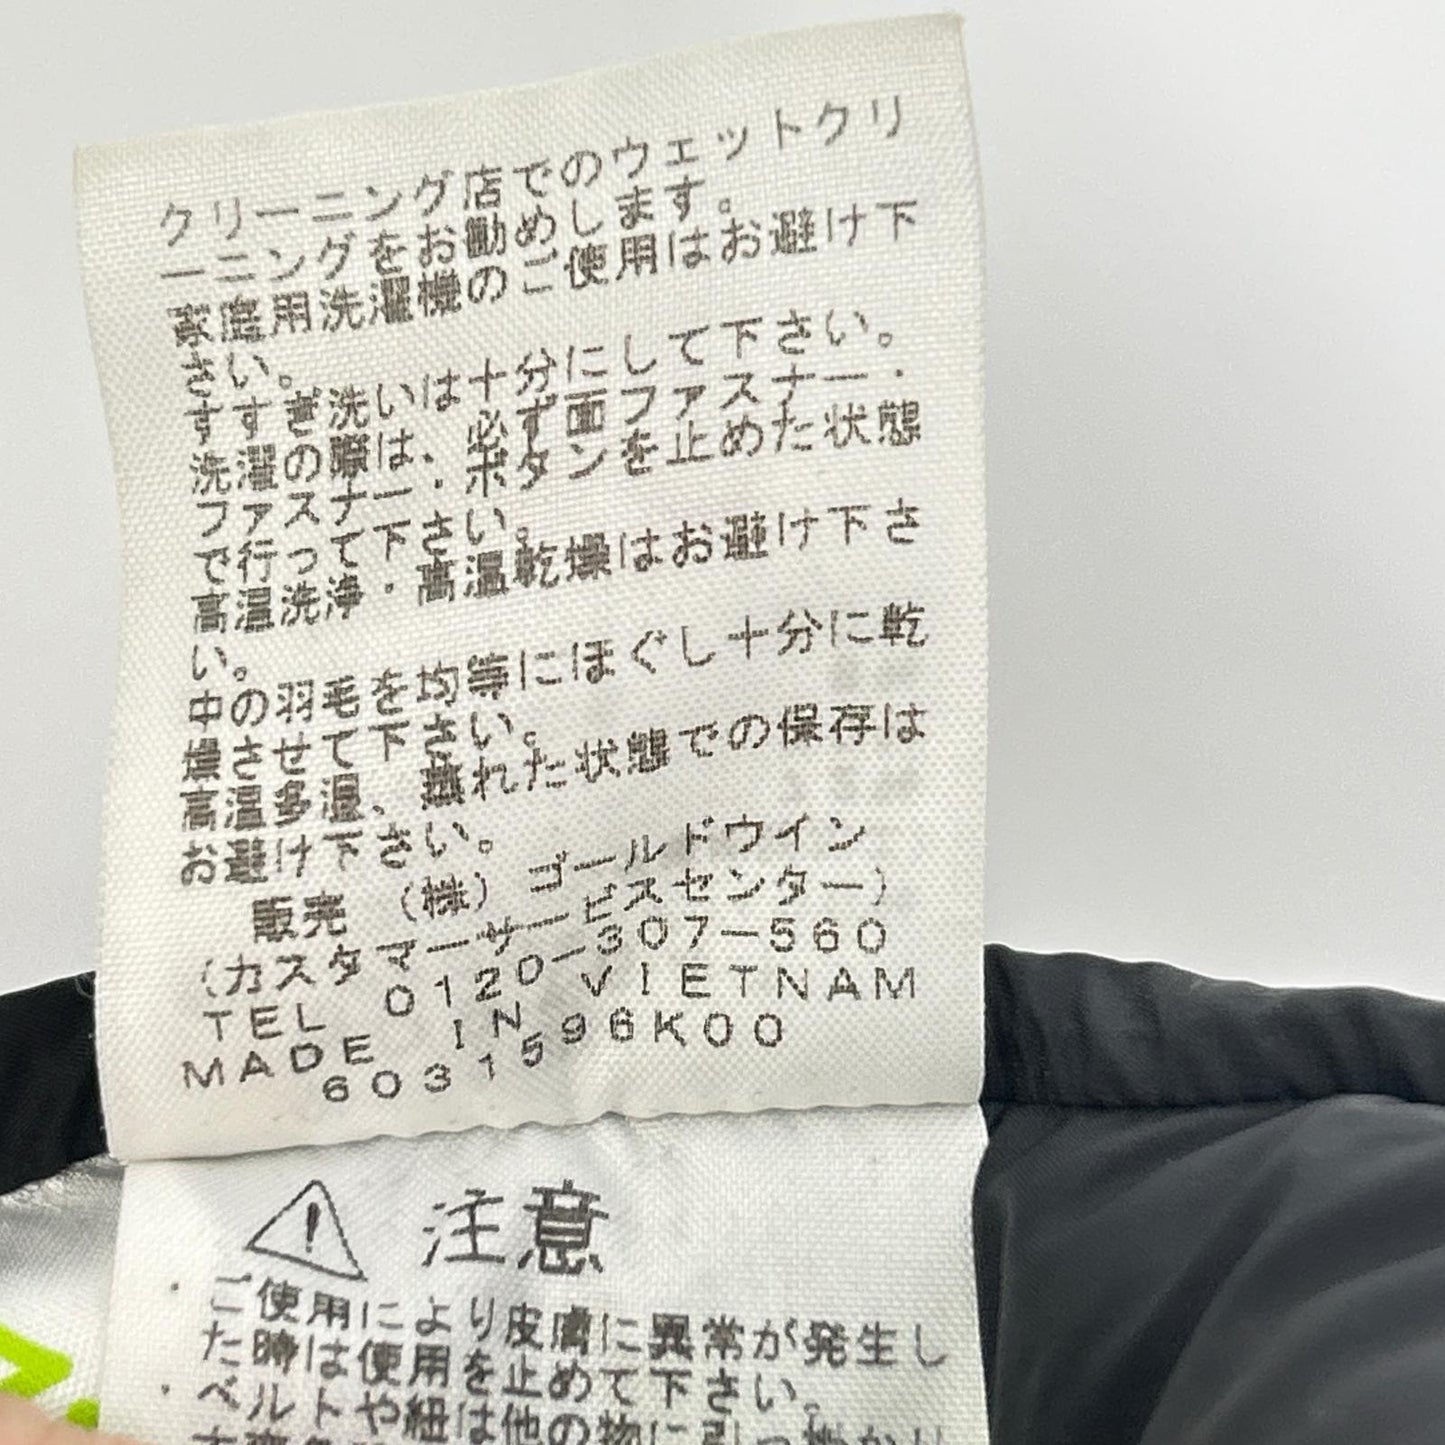 クリーニング店でのウェットクリ
ーニングをお勧めします。
家庭用洗濯機のご使用はお避け下
さい。
すすぎ洗いは十分にして下さい。
洗濯の際は、必ず面ファスナー・
ファスナー・ボタンを止めた状態
で行って下さい。
高温洗浄・高温乾燥はお避け下さ
い。
中の羽毛を均等にほぐし十分に乾
燥させて下さい。
高温多湿、蒸れた状態での保存は
お避け下さい。
販売 (株) ゴールドウイン
(カスタマーサービスセンター)
TEL 0120-307-560
MADE IN VIETNAM
6031596K00
注意
・ご使用により皮膚に異常が発生し
た時は使用を止めて下さい。
・ベルトや紐は他の物に引っ掛かり